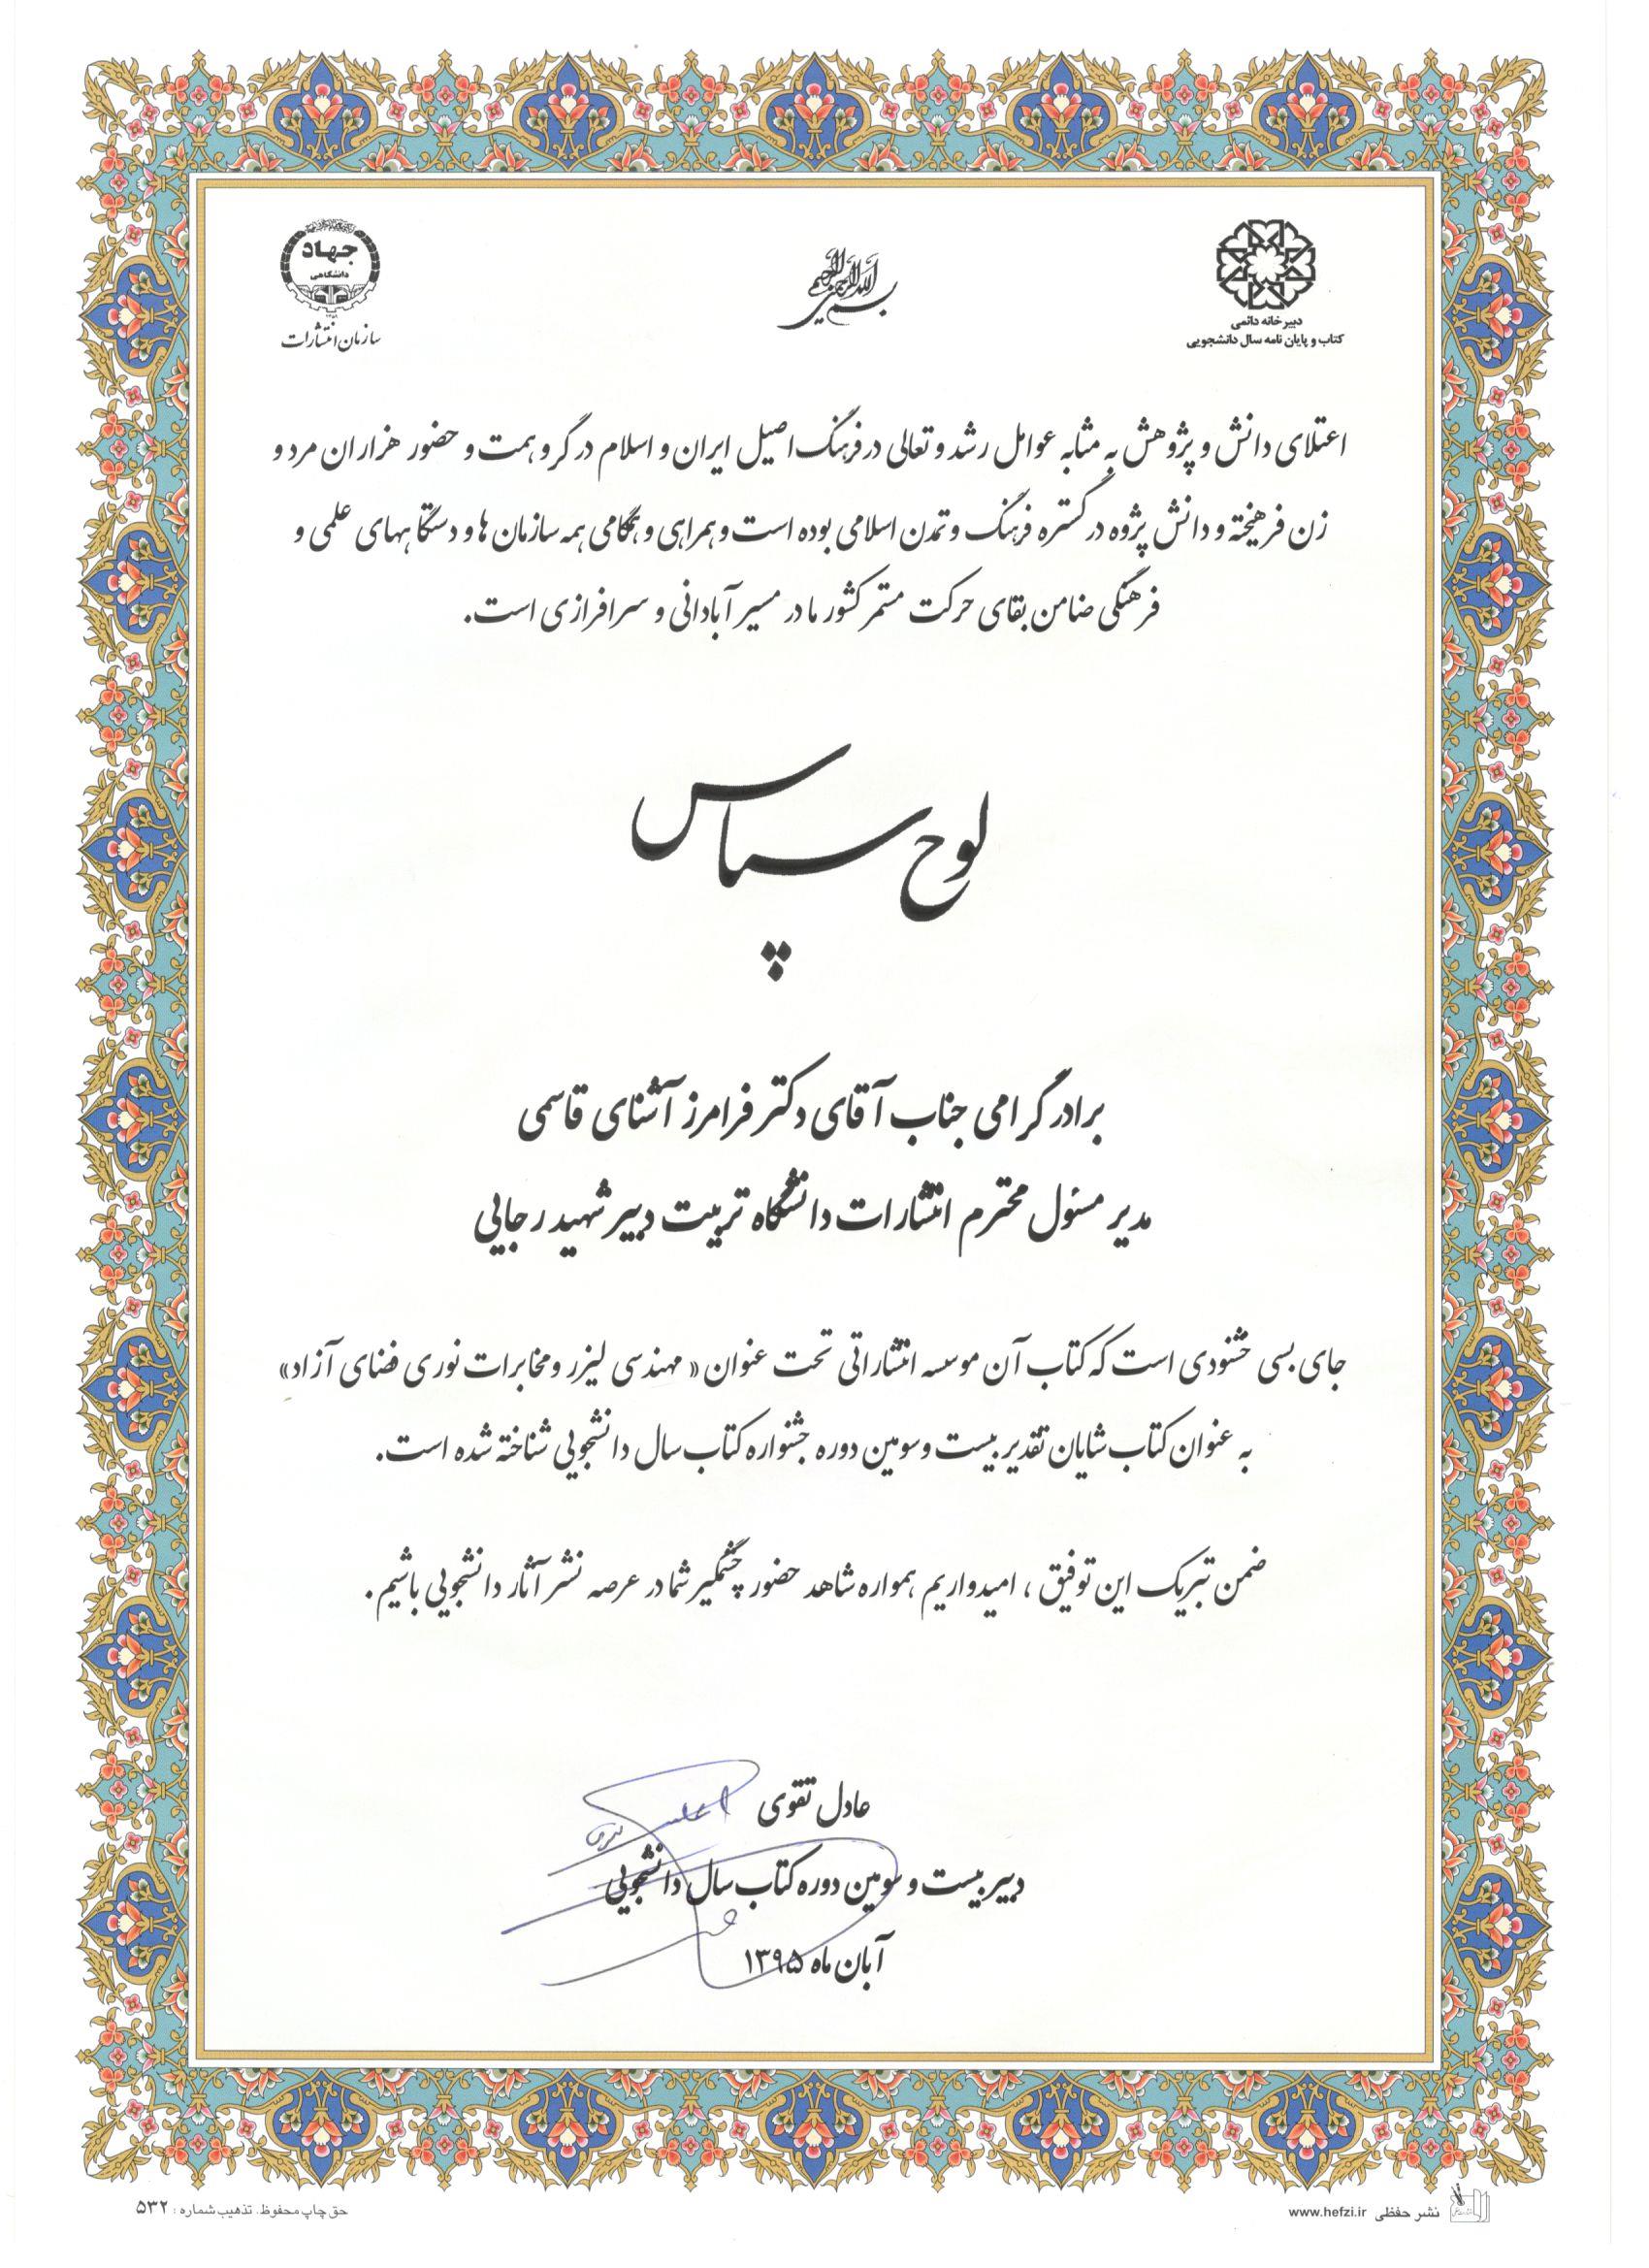 بسم الله الرحمن الرحیم
دبیرخانه دائمی
کتاب و پایان نامه سال دانشجویی
جهاد
دانشگاهی
سازمان انتشارات
اعتلای دانش و پژوهش به مثابه عوامل رشد و تعالی در فرهنگ اصیل ایران و اسلام در گرو همت و حضور هزاران مرد و
زن فرهیخته و دانش پژوه در گستره فرهنگ و تمدن اسلامی بوده است و همراهی و همگامی همه سازمان ها و دستگاههای علمی و
فرهنگی ضامن بقای حرکت مستمر کشور ما در مسیر آبادانی و سرافرازی است.
لوح سپاس
برادر گرامی جناب آقای دکتر فرامرز آشنای قاسمی
مدیر مسئول محترم انتشارات دانشگاه تربیت دبیر شهید رجایی
جای بسی خشنودی است که کتاب آن موسسه انتشاراتی تحت عنوان «مهندسی لیزر و مخابرات نوری فضای آزاد»
به عنوان کتاب شایان تقدیر بیست و سومین دوره جشنواره کتاب سال دانشجویی شناخته شده است.
ضمن تبریک این توفیق ، امیدواریم همواره شاهد حضور چشمگیر شما در عرصه نشر آثار دانشجویی باشیم.
عادل تقوی
دبیر بیست و سومین دوره کتاب سال دانشجویی
آبان ماه ۱۳۹۵
نشر حفظی www.hefzi.ir
حق چاپ محفوظ. تذهیب شماره : ۵۳۲